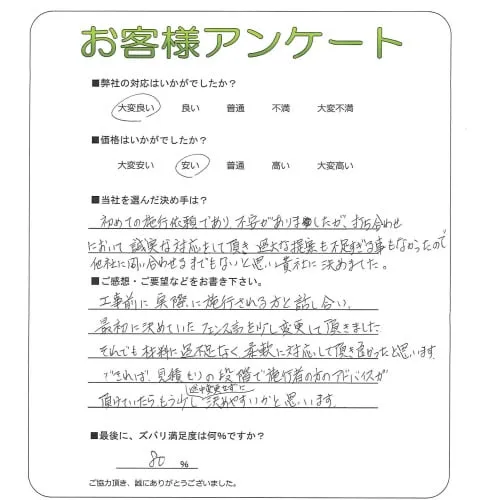 お客様アンケート
■弊社の対応はいかがでしたか?
大変良い 良い 普通 不満 大変不満
■価格はいかがでしたか?
大変安い 安い 普通 高い 大変高い
■当社を選んだ決め手は?
初めての施行依頼であり、不安がありましたが、打ち合わせ
において誠実な対応をして頂き過大な提案も不足すぎる事もなかったので
他社に問い合わせるまでもないと思い貴社に決めました。
■ご感想・ご要望などをお書き下さい。
工事前に実際に施行される方と話し合い、
最初に決めていたフェンス高を少し変更して頂きました
それでも材料に過不足なく柔軟に対応して頂き良かったと思います
できれば、見積もりの段階で施行者の方のアドバイスが
途中変更せずに
頂けていたらもう少し決めやすいかと思います。
■最後に、ズバリ満足度は何%ですか?
80 %
ご協力頂き、誠にありがとうございました。